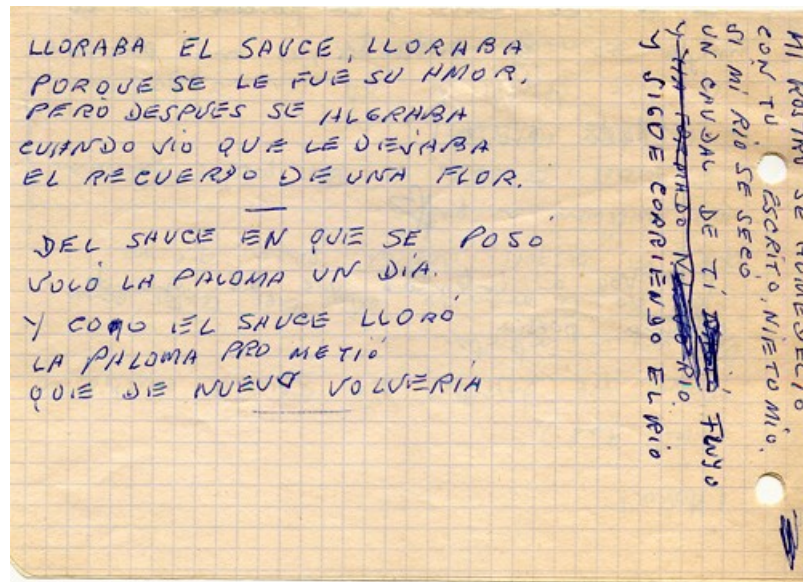 LLORABA EL SAUCE, LLORABA
PORQUE SE LE FUE SU AMOR.
PERO DESPUES SE ALGRABA
CUANDO VIO QUE LE DEJABA
EL RECUERDO DE UNA FLOR.
DEL SAUCE EN QUE SE POSÓ
VOLÓ LA PALOMA UN DÍA.
Y COMO EL SAUCE LLORÓ
LA PALOMA PROMETIÓ
QUE DE NUEVO VOLVERIA
MI ROSTRO SE HUMEDECIO
CON TU ESCRITO, NIETO MÍO.
SI MI RIO SE SECÓ
UN CAUDAL DE TÍ FLUYÓ
Y HA FORMADO RIO.
Y SIGUE CORRIENDO EL RIO